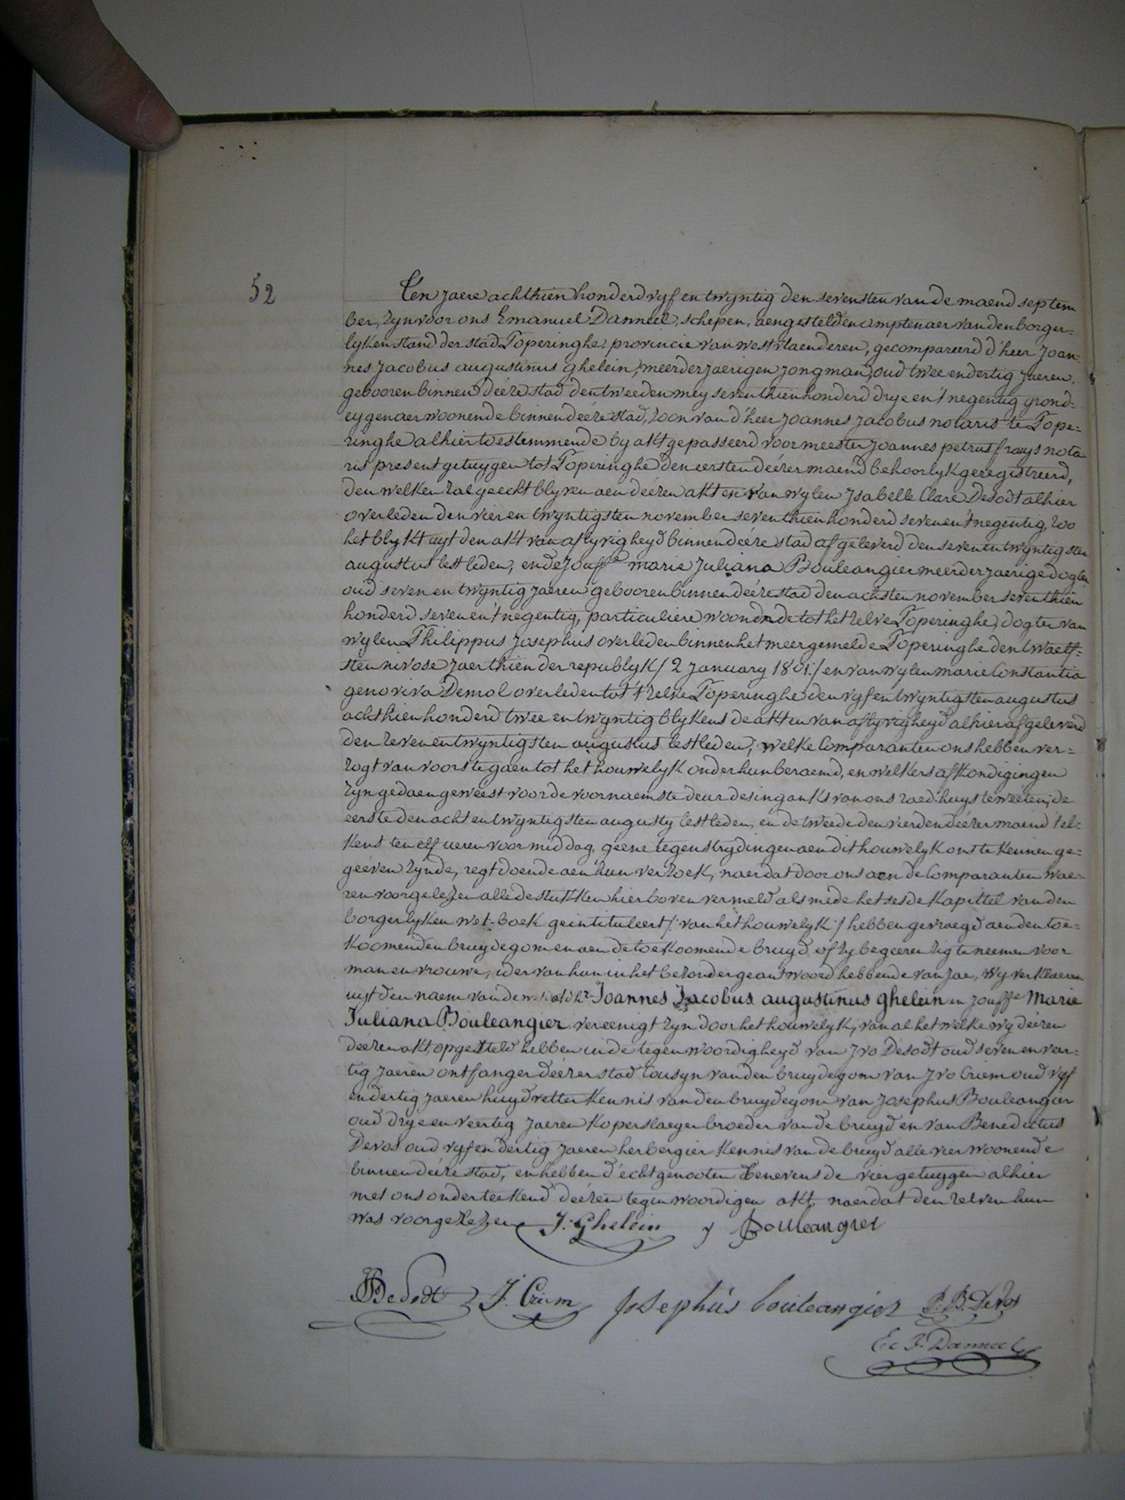 52
Ten jaere achthien honderd vyf en twyntig den sevensten van de maend septem
ber, zyn voor ons Emanuel Danneel, schepen, aengestelden amptenaer van den borger-
lyken stand der stad Poperinghe provincie van westvlaenderen, gecompareerd d'heer Joan-
nes Jacobus augustinus ghelein, meerderjaerigen jongman, oud twee en dertig jaeren,
gebooren binnen deéze stad den tweeden mey seventhien honderd drye en 't negentig grond-
eygenaer woonende binnen deéze stad, zoon van d'heer Joannes Jacobus notaris te Pope-
ringhe alhier toestemmende by akt gepasseerd voor meester Joannes petrus frays nota
ris present getuygen tot Poperinghe den eersten deézer maend behoorlyk geregistreerd,
den welken zal geecht blyven aen deézen akt en van wylen Isabelle Clare Desodt alhier
overleden den vier en twyntigsten november seventhien honderd seven en 't negentig, zoo
het blykt uyt den akt van aflyvigheyd binnen deéze stad afgeleverd den seven en twyntigsten
augustus lestleden, ende Jouffe marie Juliana Bouleangier meerderjaerige dogter
oud seven en twyntig jaeren gebooren binnen deéze stad den achsten november seventhien
honderd seven en 't negentig, particuliere woonende tot het zelve Poperinghe, dogter van
wylen Philippus Josephus overleden binnen het meergemelde Poperinghe den twaelf-
sten nivose Jaer thien der republyk /: 2 January 1801 :/ en van wylen marie Constantia
genoviva Demol overleden tot 't zelve Poperinghe den vyf en twyntigsten augustus
achthien honderd twee en twyntig blykens de akten van aflyvigheyd alhier afgeleverd
den zeven en twyntigsten augustus lestleden, welke Comparanten ons hebben ver-
zogt van voorts te gaen tot het houwelyk onder hun beraemd, en welkers afkondigingen
zyn gedaen geweest voor de voornaemste deur des ingank's van ons raedhuys te weeten, de
eerste den acht en twyntigsten augusty lestleden, en de tweede den vierden deézer maend tel-
kens ten elf ueren voor middag, geene tegenstrydingen aen dit houwelyk ons te kennen ge-
geéven zynde, regt doende aen hun verzoek, naerdat door ons aen de Comparanten waer
ren voorgelezen alle de stukken hier boven vermeld als mede het sesde Kapittel van den
borgerlyken wet-boek geintituleert /: van het houwelyk :/ hebben gevraegd aen den toe-
Koomenden bruydegom en aen de toekoomende bruyd of zy begeeren zig te neemen voor
man en vrouwe, ider van hun in het bezonder geantwoord hebbende van jae, wy verklaeren
uyt den naem van de wet dat dhr Joannes Jacobus augustinus ghelein en Jouffe Marie
Juliana Bouleangier vereenigt zyn door het houwelyk, van al het welke wy deézen
deezen akt opgesteld hebben in de tegenwoordigheyd van Jvo Desodt oud seven en veer-
tig jaeren ontfanger deézer stad Cousyn van den bruydegom van Jvo Cruem oud vyf
en dertig jaeren huydvetter kennis van den bruydegom van Josephus Bouleangier
oud drye en veertig jaeren koperslaeger broeder van de bruyd en van Benedictus
Devos oud vyf en dertig jaeren herbergier kennis van de bruyd alle vier woonende
binnen deéze stad, en hebben d'echtgenooten benevens de vier getuygen alhier
met ons onderteekend deezen tegenwoordigen akt, naerdat den zelven hun
was voorgelezen J: Ghelein Bouleangier
Desodt J. Cruem Josephus bouleangier P. B. Devos
E. F. Danneel